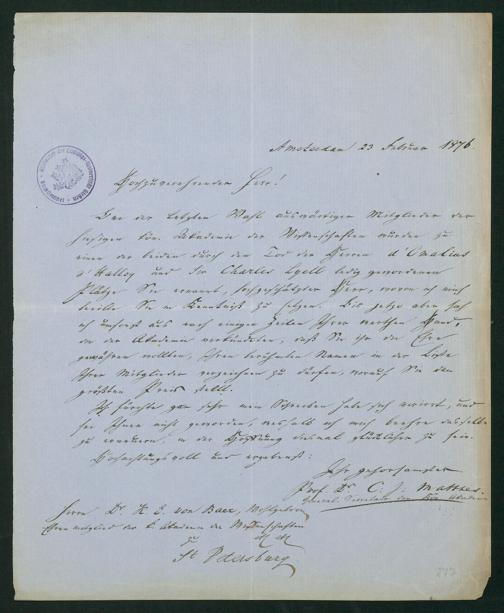 Amsterdam 23 Februar 1876.
Hochzuverehrender Herr!
Bei der letzten Wahl auswärtiger Mitglieder der
hiesigen Kön. Akademie der Wissenschaften wurden zu
einem der beiden durch den Tod der Herren d'Omalius
d'Halloy und Sir Charles Lyell ledig gewordenen
Plätze Sie ernannt, hochgeschätzter Herr, wovon ich mich
beeilte Sie in Kenntniß zu setzen. Bis jetzt aber sah
ich umsonst aus nach einigen Zeilen Ihrer werthen Hand,
die der Akademie verkündeten, daß Sie ihr die Ehre
gewähren wollten, Ihren berühmten Namen in der Liste
Ihrer Mitglieder verzeichnen zu dürfen, worauf Sie den
größten Preis stellt.
Ich fürchte gar sehr mein Schreiben habe sich verirrt, und
sei Ihnen nicht geworden, weshalb ich mich beehre dasselbe
zu erneuern, in der Hoffnung diesmal glücklicher zu sein.
Hochachtungsvoll und ergebenst:
Ihr gehorsamster
Prof. Dr. C. J. Matthes.
Herrn Dr. K. E. von Baer, Wohlgeboren
Ehrenmitglied der K. Akademie der Wissenschaften
zu
St Petersburg